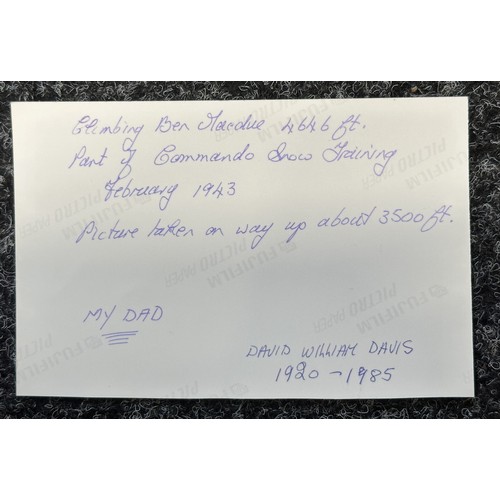 Climbing Ben Macdue 4646 ft.
Part of Commando Snow Training
February 1943
Picture taken on way up about 3500 ft.
MY DAD
DAVID WILLIAM DAVIS
1920 - 1985
FUJIFILM
PICTRO PAPER